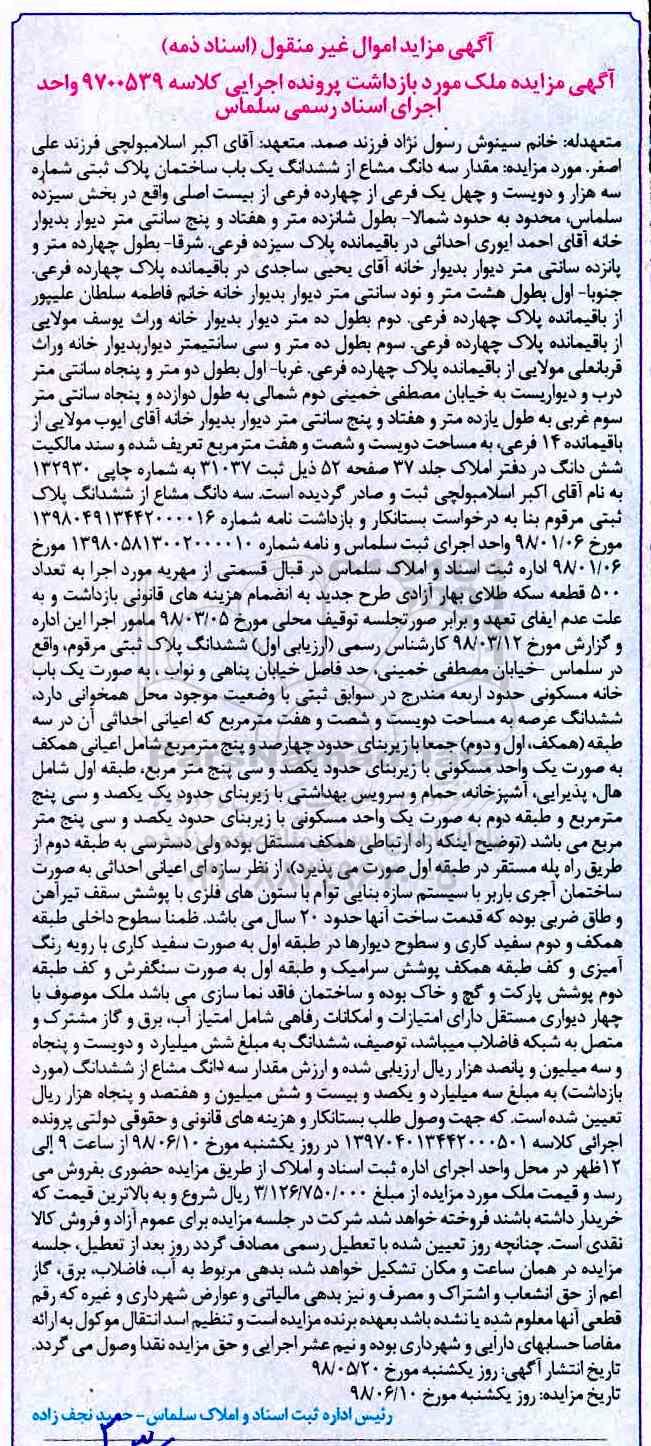 آگهی مزاید اموال غیر منقول (اسناد ذمه)
آگهی مزایده ملک مورد بازداشت پرونده اجرایی کلاسه ۹۷۰۰۵۳۹ واحد
اجرای اسناد رسمی سلماس
متعهدله: خانم سینوش رسول نژاد فرزند صمد. متعهد: آقای اکبر اسلامبولچی فرزند علی
اصغر. مورد مزایده: مقدار سه دانگ مشاع از ششدانگ یک باب ساختمان پلاک ثبتی شماره
سه هزار و دویست و چهل یک فرعی از چهارده فرعی از بیست اصلی واقع در بخش سیزده
سلماس، محدود به حدود شمالا- بطول شانزده متر و هفتاد و پنج سانتی متر دیوار بدیوار
خانه آقای احمد ابوری احداثی در باقیمانده پلاک سیزده فرعی. شرقا- بطول چهارده متر و
پانزده سانتی متر دیوار بدیوار خانه آقای یحیی ساجدی در باقیمانده پلاک چهارده فرعی.
جنوبا- اول بطول هشت متر و نود سانتی متر دیوار بدیوار خانه خانم فاطمه سلطان علیپور
از باقیمانده پلاک چهارده فرعی. دوم بطول ده متر دیوار بدیوار خانه وراث یوسف مولایی
از باقیمانده پلاک چهارده فرعی. سوم بطول ده متر و سی سانتیمتر دیواربدیوار خانه وراث
قربانعلی مولایی از باقیمانده پلاک چهارده فرعی. غربا- اول بطول دو متر و پنجاه سانتی متر
درب و دیواریست به خیابان مصطفی خمینی دوم شمالی به طول دوازده و پنجاه سانتی متر
سوم غربی به طول یازده متر و هفتاد و پنج سانتی متر دیوار بدیوار خانه آقای ایوب مولایی از
باقیمانده ۱۴ فرعی، به مساحت دویست و شصت و هفت مترمربع تعریف شده و سند مالکیت
شش دانگ در دفتر املاک جلد ۳۷ صفحه ۵۲ ذیل ثبت ۳۱۰۳۷ به شماره چاپی ۱۳۲۹۳۰
به نام آقای اکبر اسلامبولچی ثبت و صادر گردیده است. سه دانگ مشاع از ششدانگ پلاک
ثبتی مرقوم بنا به درخواست بستانکار و بازداشت نامه شماره ۱۳۹۸۰۴۹۱۳۴۴۲۰۰۰۰۱۶
مورخ ۹۸/۰۱/۰۶ واحد اجرای ثبت سلماس و نامه شماره ۱۳۹۸۰۵۸۱۳۰۰۲۰۰۰۰۱۰ مورخ
۹۸/۰۱/۰۶ اداره ثبت اسناد و املاک سلماس در قبال قسمتی از مهریه مورد اجرا به تعداد
۵۰۰ قطعه سکه طلای بهار آزادی طرح جدید به انضمام هزینه های قانونی بازداشت و به
علت عدم ایفای تعهد و برابر صورتجلسه توقیف محلی مورخ ۹۸/۰۳/۰۵ مامور اجرا این اداره
و گزارش مورخ ۹۸/۰۳/۱۲ کارشناس رسمی (ارزیابی اول) ششدانگ پلاک ثبتی مرقوم، واقع
در سلماس -خیابان مصطفی خمینی، حد فاصل خیابان پناهی و نواب ، به صورت یک باب
خانه مسکونی حدود اربعه مندرج در سوابق ثبتی با وضعیت موجود محل همخوانی دارد،
ششدانگ عرصه به مساحت دویست و شصت و هفت مترمربع که اعیانی احداثی آن در سه
طبقه (همکف، اول و دوم) جمعا با زیربنای حدود چهارصد و پنج مترمربع شامل اعیانی همکف
به صورت یک واحد مسکونی با زیربنای حدود یکصد و سی پنج متر مربع، طبقه اول شامل
هال، پذیرایی، آشپزخانه، حمام و سرویس بهداشتی با زیربنای حدود یک یکصد و سی پنج
مترمربع و طبقه دوم به صورت یک واحد مسکونی با زیربنای حدود یکصد و سی پنج متر
مربع می باشد (توضیح اینکه راه ارتباطی همکف مستقل بوده ولی دسترسی به طبقه دوم از
طریق راه پله مستقر در طبقه اول صورت می پذیرد). از نظر سازه ای اعیانی احداثی به صورت
ساختمان آجری باربر با سیستم سازه بنایی توام با ستون های فلزی با پوشش سقف تیرآهن
و طاق ضربی بوده که قدمت ساخت آنها حدود ۲۰ سال می باشد. ظمنا سطوح داخلی طبقه
همکف و دوم سفید کاری و سطوح دیوارها در طبقه اول به صورت سفید کاری با رویه رنگ
آمیزی و کف طبقه همکف پوشش سرامیک و طبقه اول به صورت سنگفرش و کف طبقه
دوم پوشش پارکت و گچ و خاک بوده و ساختمان فاقد نما سازی می باشد ملک موصوف با
چهار دیواری مستقل دارای امتیازات و امکانات رفاهی شامل امتیاز آب، برق و گاز مشترک و
متصل به شبکه فاضلاب میباشد، توصیف، ششدانگ به مبلغ شش میلیارد و دویست و پنجاه
و سه میلیون و پانصد هزار ریال ارزیابی شده و ارزش مقدار سه دانگ مشاع از ششدانگ (مورد
بازداشت) به مبلغ سه میلیارد و یکصد و بیست و شش میلیون و هفتصد و پنجاه هزار ریال
تعیین شده است. که جهت وصول طلب بستانکار و هزینه های قانونی و حقوقی دولتی پرونده
اجرائی کلاسه ۱۳۹۷۰۴۰۱۳۴۴۲۰۰۰۵۰۱ در روز یکشنبه مورخ ۹۸/۰۶/۱۰ از ساعت ۹ الی
۱۲ظهر در محل واحد اجرای اداره ثبت اسناد و املاک از طریق مزایده حضوری بفروش می
رسد و قیمت ملک مورد مزایده از مبلغ ۳/۱۲۶/۷۵۰/۰۰۰ ریال شروع و به بالاترین قیمت که
خریدار داشته باشند فروخته خواهد شد. شرکت در جلسه مزایده برای عموم آزاد و فروش کالا
نقدی است. چنانچه روز تعیین شده با تعطیل رسمی مصادف گردد روز بعد از تعطیل، جلسه
مزایده در همان ساعت و مکان تشکیل خواهد شد، بدهی مربوط به آب، فاضلاب، برق، گاز
اعم از حق انشعاب و اشتراک و مصرف و نیز بدهی مالیاتی و عوارض شهرداری و غیره که رقم
قطعی آنها معلوم شده یا نشده باشد بعهده برنده مزایده است و تنظیم اسد انتقال موکول به ارائه
مفاصا حسابهای دارایی و شهرداری بوده و نیم عشر اجرایی و حق مزایده نقدا وصول می گردد.
تاریخ انتشار آگهی: روز یکشنبه مورخ ۹۸/۰۵/۲۰
تاریخ مزایده: روز یکشنبه مورخ ۹۸/۰۶/۱۰
رئیس اداره ثبت اسناد و املاک سلماس- حمید نجف زاده